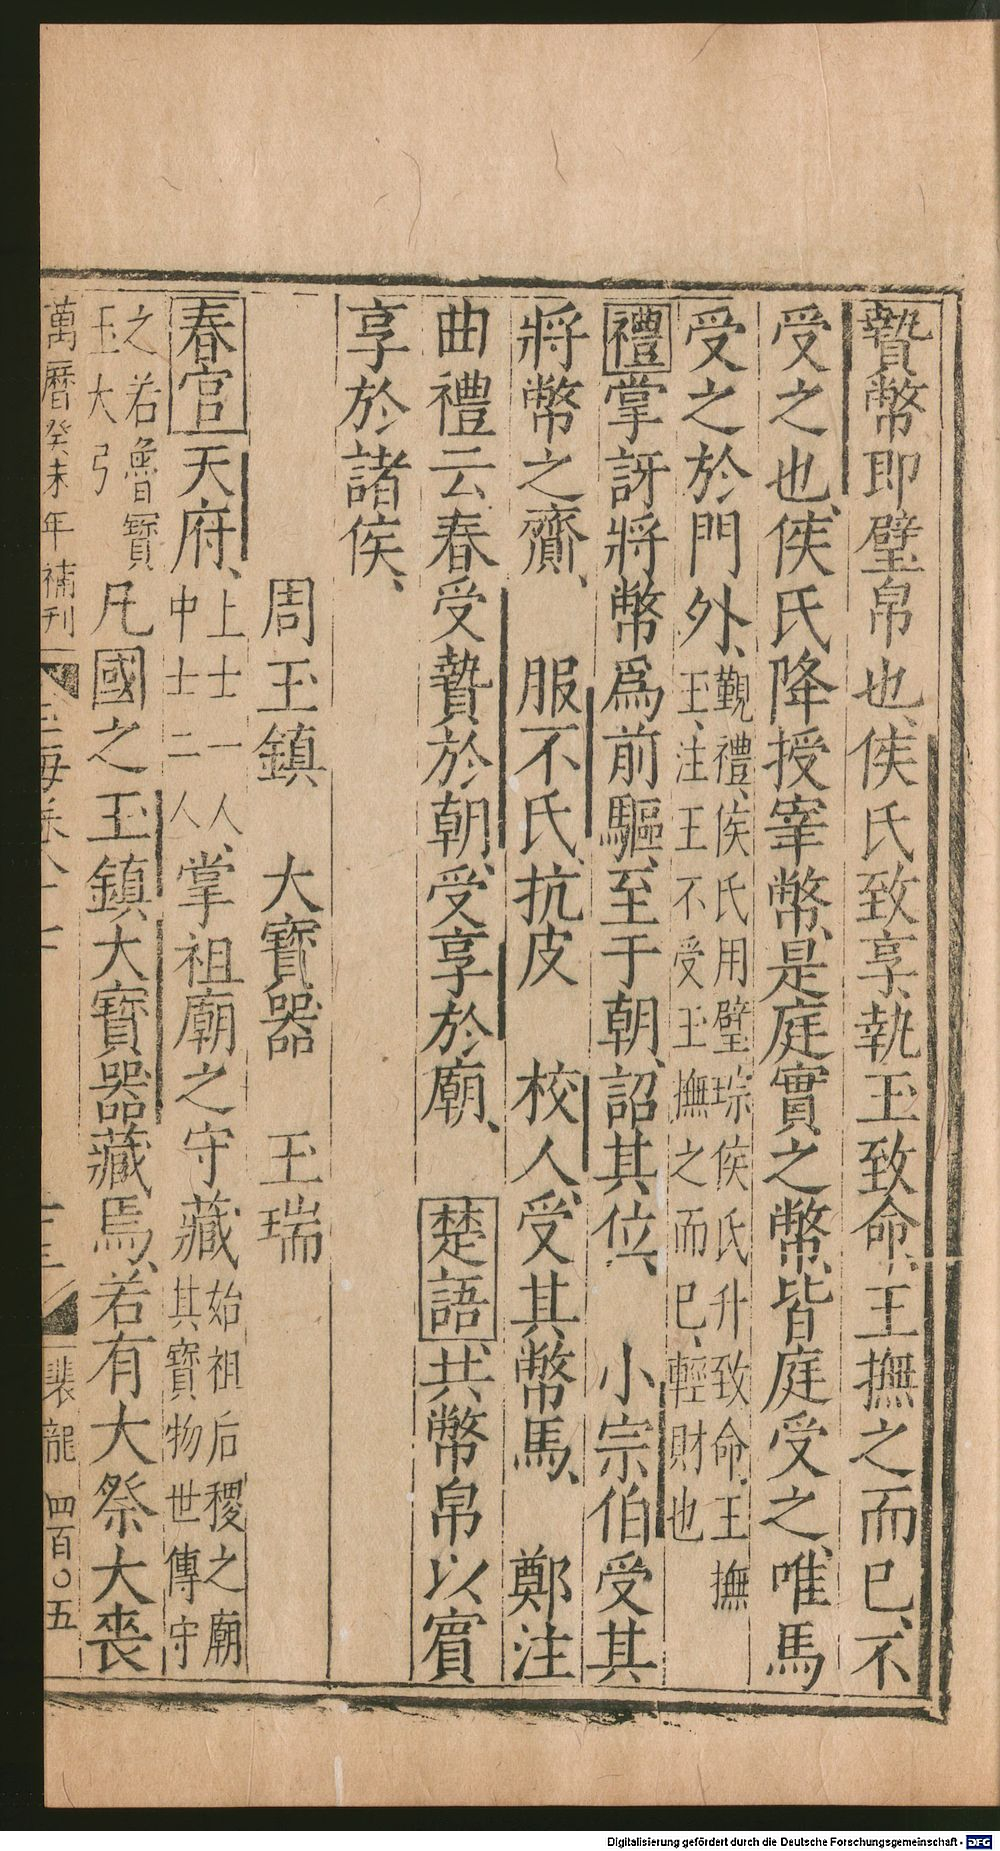 贄幣即璧帛也侯氏致享執玉致命王撫之而已不
受之也侯氏降授宰幣是庭實之幣皆庭受之唯馬
受之於門外覲禮侯氏用璧琮侯氏升致命王撫
玉注王不受玉撫之而已輕財也
禮掌訝將幣爲前驅至于朝詔其位 小宗伯受其
將幣之齎 服不氏抗皮 校人受其幣馬 鄭注
曲禮云春受贄於朝受享於廟 楚語共幣帛以賓
享於諸侯
周玉鎮 大寶器 玉瑞
春官天府上士一人中士二人掌祖廟之守藏始祖后稷之廟其寶物世傳守
之若魯寶玉大弓凡國之玉鎮大寶器藏焉若有大祭大喪
萬曆癸未年補刊 玉海卷八十七 十三 裴龍 四百〇五
Digitalisierung gefördert durch die Deutsche Forschungsgemeinschaft - DFG